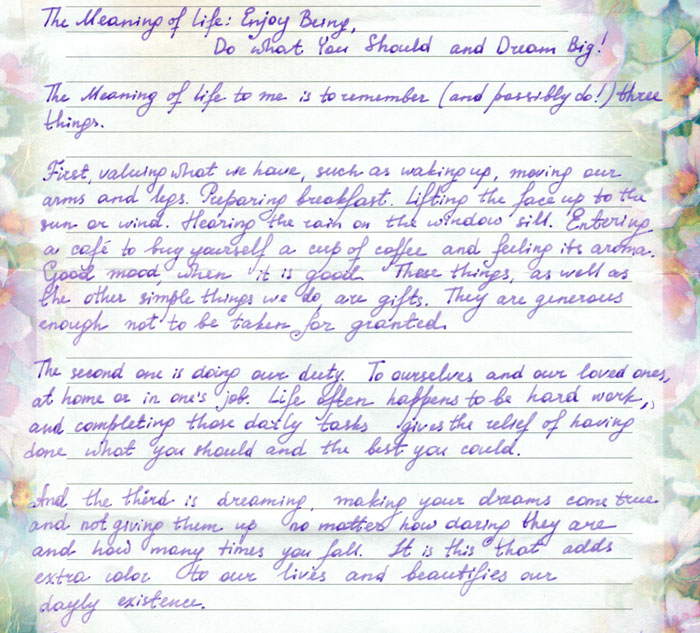 The Meaning of Life: Enjoy Being,
Do what You Should and Dream Big!
The Meaning of Life to me is to remember (and possibly do!) three
things.
First, valuing what we have, such as waking up, moving our
arms and legs. Preparing breakfast. Lifting the face up to the
sun or wind. Hearing the rain on the window sill. Entering
a café to buy yourself a cup of coffee and feeling its aroma.
Good mood, when it is good. These things, as well as
the other simple things we do, are gifts. They are generous
enough not to be taken for granted.
The second one is doing our duty. To ourselves and our loved ones,
at home or in one's job. Life often happens to be hard work,
and completing those daily tasks gives the relief of having
done what you should and the best you could.
And the third is dreaming, making your dreams come true
and not giving them up no matter how daring they are
and how many times you fall. It is this that adds
extra color to our lives and beautifies our
dayly existence.